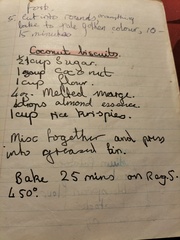 Fork.
5. Cut into rounds
bake to pale golden colour, 10-
15 minutes
Coconut biscuits.
3/4 cup Sugar.
1 cup Coconut
1 cup flour.
4 oz. Melted marge.
drops almond essence.
1 cup rice krispies.
Misc together and press
into greased tin.
Bake 25 mins on Reg 5.
450°.